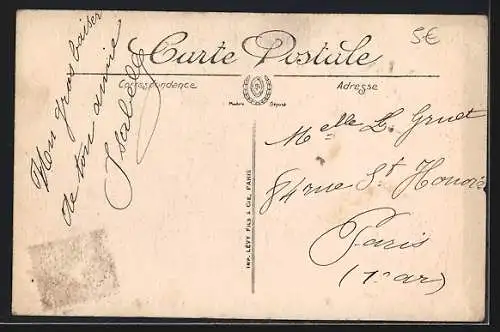 5€
Carte Postale
Correspondence
Adresse
Modèle Déposé
Mon gros baiser
de ton amie
Isabelle
Melle L. Gruet
84 rue St Honoré
Paris
(1er ar)
IMP. LÉVY FILS & CIE, PARIS